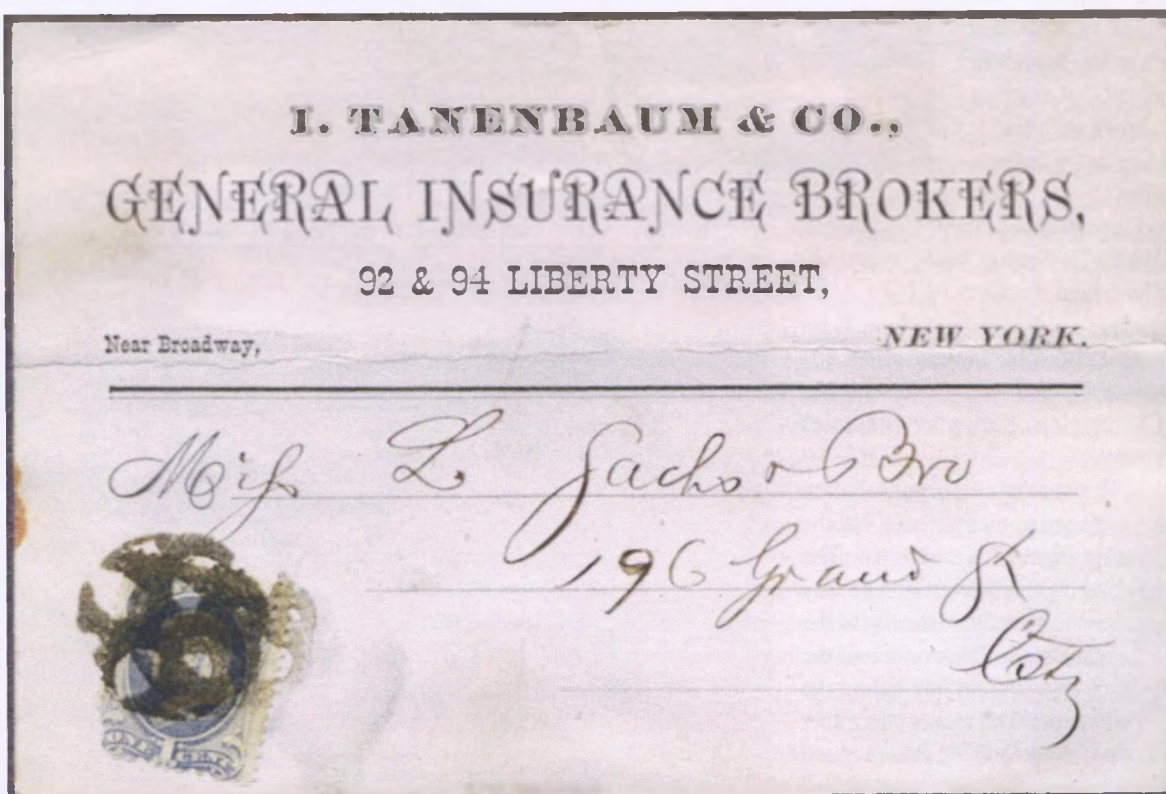 I. TANENBAUM & CO.,
GENERAL INSURANCE BROKERS,
92 & 94 LIBERTY STREET,
Near Broadway,
NEW YORK.
L. Sachs & Bro
196 Grand St
City
ONE 1 CENT